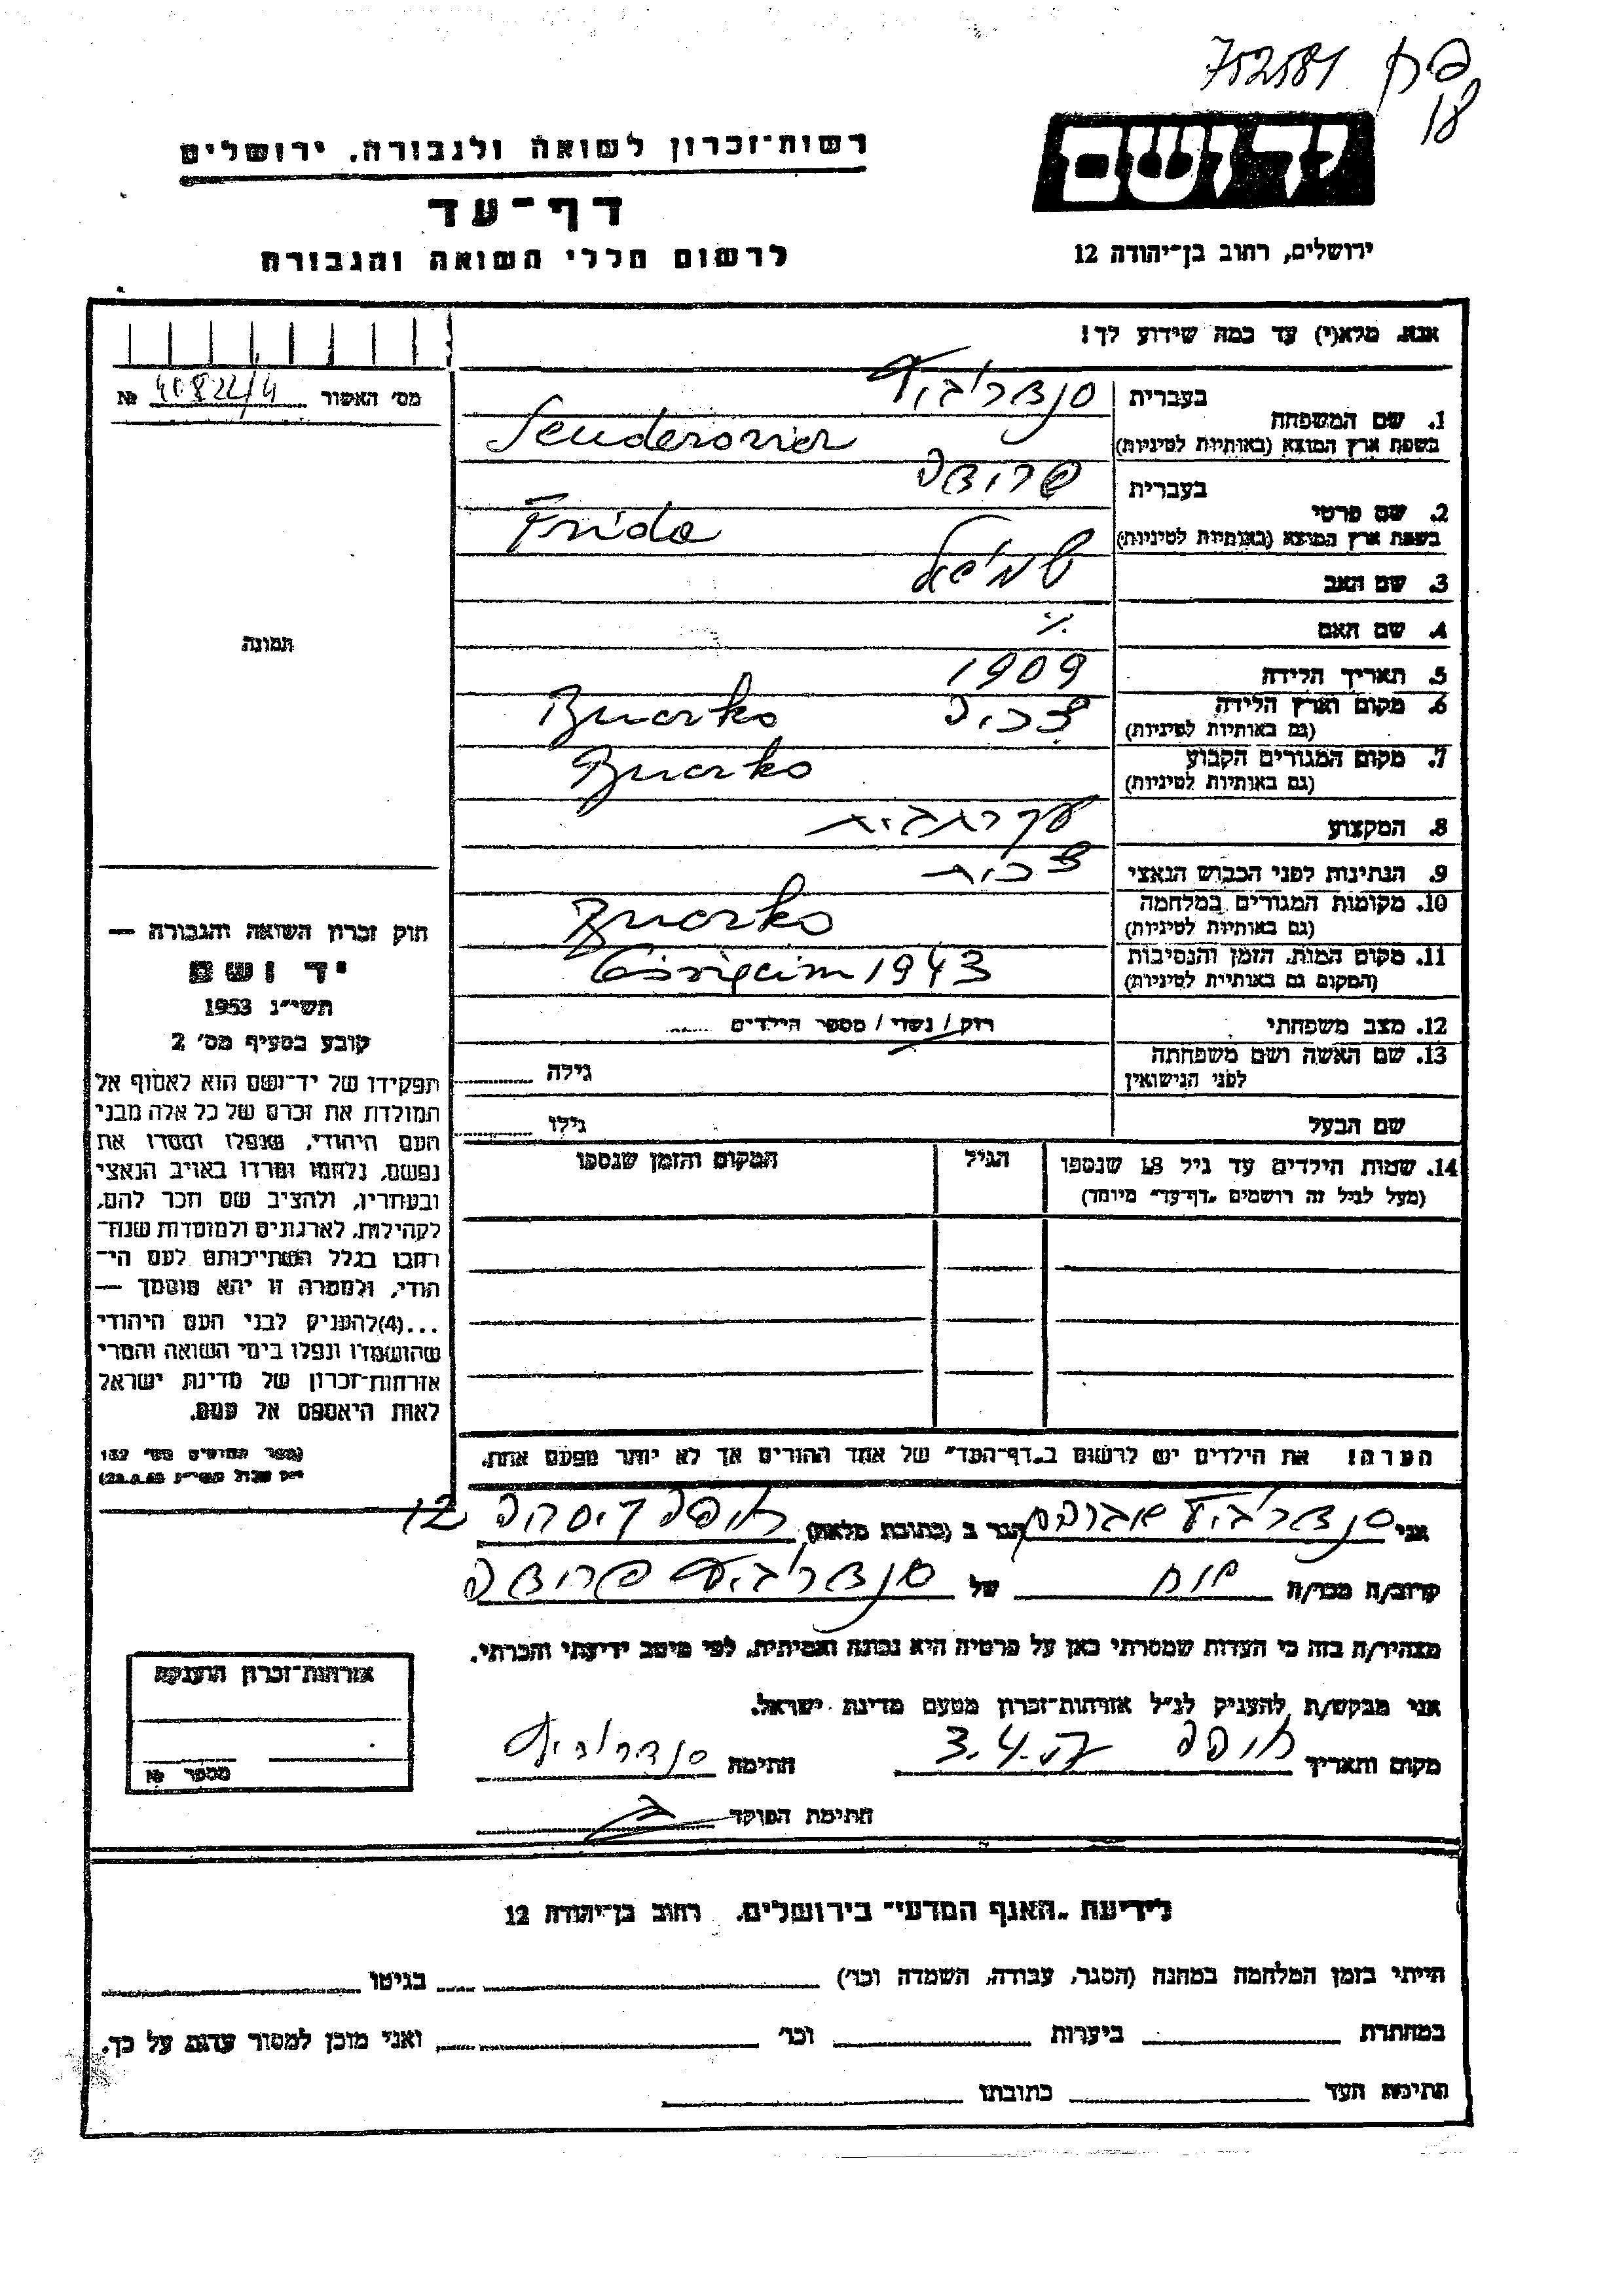 752581
18
יד ושם
רשות־זכרון לשואה ולגבורה, ירושלים
דף־עד
לרשום חללי השואה והגבורה
ירושלים, רחוב בן־יהודה 12
אנא, מלא(י) עד כמה שידוע לך!
מס׳ האשור № 40822/4
1. שם המשפחה
בעברית
בשפת ארץ המוצא (באותיות לטיניות)
2. שם פרטי
בעברית פרידה
בשפת ארץ המוצא (באותיות לטיניות) Frida
3. שם האב שמואל
4. שם האם ./.
5. תאריך הלידה 1909
6. מקום וארץ הלידה
(גם באותיות לטיניות)
7. מקום המגורים הקבוע
(גם באותיות לטיניות)
8. המקצוע עקרת בית
9. הנתינות לפני הכבוש הנאצי
10. מקומות המגורים במלחמה
(גם באותיות לטיניות)
11. מקום המות, הזמן והנסיבות 1943
(המקום גם באותיות לטיניות)
12. מצב משפחתי רוק / נשוי / מספר הילדים
13. שם האשה ושם משפחתה
לפני הנישואין גילה
שם הבעל גילו
14. שמות הילדים עד גיל 18 שנספו הגיל המקום והזמן שנספו
(מעל לגיל זה רושמים „דף־עד" מיוחד)
הערה! את הילדים יש לרשום ב„דף־העד" של אחד ההורים אך לא יותר מפעם אחת.
תמונה
חוק זכרון השואה והגבורה —
יד ושם
תשי״ג 1953
קובע בסעיף מס׳ 2
תפקידו של יד־ושם הוא לאסוף אל
המולדת את זכרם של כל אלה מבני
העם היהודי, שנפלו ומסרו את
נפשם, נלחמו ומרדו באויב הנאצי
ובעוזריו, ולהציב שם וזכר להם,
לקהילות, לארגונים ולמוסדות שנח־
רבו בגלל השתייכותם לעם הי־
הודי, ולמטרה זו יהא מוסמך —
...(4)להעניק לבני העם היהודי
שהושמדו ונפלו בימי השואה והמרי
אזרחות־זכרון של מדינת ישראל
לאות היאספם אל עמם.
(ספר החוקים מס׳ 132
אני הגר ב (כתובת מלאה) חיפה 12
קרוב/ה מכר/ה אח של פרידה
מצהיר/ה בזה כי העדות שמסרתי כאן על פרטיה היא נכונה ואמיתית, לפי מיטב ידיעתי והכרתי.
אני מבקש/ת להעניק לנ״ל אזרחות־זכרון מטעם מדינת ישראל.
מקום ותאריך חיפה 3.4.57 חתימה
חתימת הפוקד
אזרחות־זכרון הוענקה
מספר №
לידיעת „האגף המדעי" בירושלים, רחוב בן־יהודה 12
הייתי בזמן המלחמה במחנה (הסגר, עבודה, השמדה וכו׳) בגיטו
במחתרת ביערות וכו׳ ואני מוכן למסור עדות על כך.
חתימת העד כתובתו